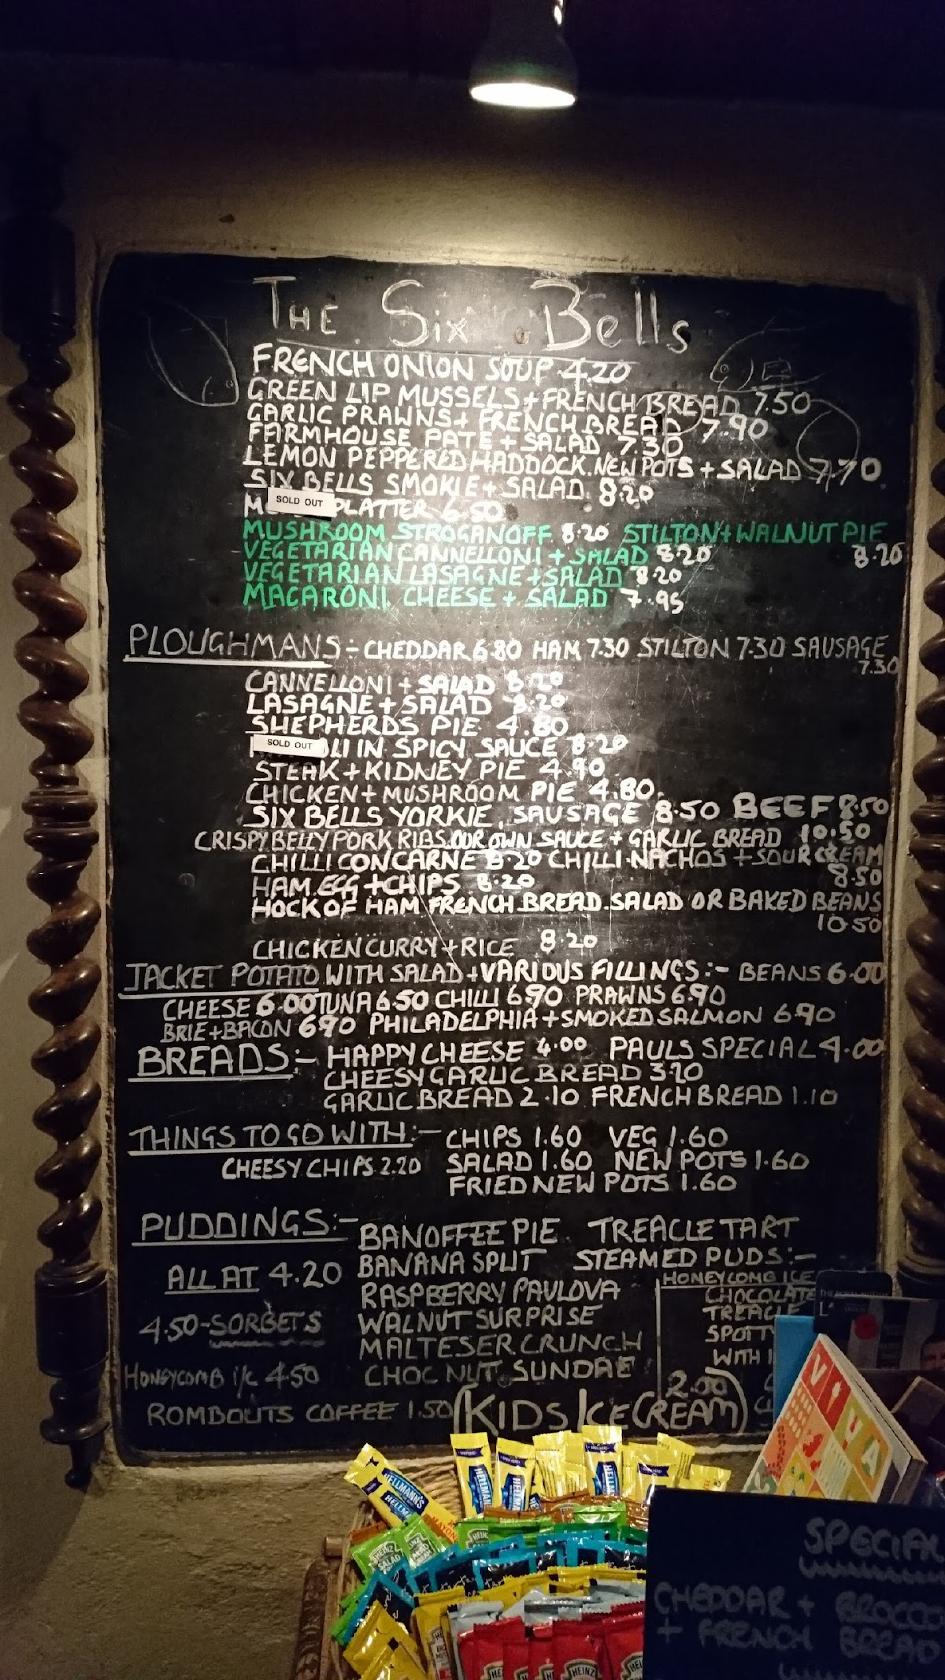 The Six Bells
FRENCH ONION SOUP 4.20
GREEN LIP MUSSELS + FRENCH BREAD 7.50
GARLIC PRAWNS + FRENCH BREAD 7.90
FARMHOUSE PATE + SALAD 7.30
LEMON PEPPERED HADDOCK. NEW POTS + SALAD 7.70
SIX BELLS SMOKIE + SALAD. 8.20
SOLD OUT PLATTER 6.50
MUSHROOM STROGANOFF 8.20 STILTON + WALNUT PIE
8.20
VEGETARIAN CANNELLONI + SALAD 8.20
VEGETARIAN LASAGNE + SALAD 8.20
MACARONI CHEESE + SALAD 7.95
PLOUGHMANS:- CHEDDAR 6.80 HAM 7.30 STILTON 7.30 SAUSAGE
7.30
CANNELLONI + SALAD 8.20
LASAGNE + SALAD 8.20
SHEPHERDS PIE 4.80
SOLD OUT IN SPICY SAUCE 8.20
STEAK + KIDNEY PIE 4.90
CHICKEN + MUSHROOM PIE 4.80.
SIX BELLS YORKIE, SAUSAGE 8.50 BEEF 8.50
CRISPY BELLY PORK RIBS. OUR OWN SAUCE + GARLIC BREAD 10.50
CHILLI CON CARNE 8.20 CHILLI NACHOS + SOUR CREAM
8.50
HAM EGG + CHIPS 8.20
HOCK OF HAM FRENCH BREAD SALAD OR BAKED BEANS
10.50
CHICKEN CURRY + RICE 8.20
JACKET POTATO WITH SALAD + VARIOUS FILLINGS:- BEANS 6.00
CHEESE 6.00 TUNA 6.50 CHILLI 6.90 PRAWNS 6.90
BRIE + BACON 6.90 PHILADELPHIA + SMOKED SALMON 6.90
BREADS:- HAPPY CHEESE 4.00 PAULS SPECIAL 4.00
CHEESY GARLIC BREAD 3.20
GARLIC BREAD 2.10 FRENCH BREAD 1.10
THINGS TO GO WITH:- CHIPS 1.60 VEG 1.60
CHEESY CHIPS 2.20 SALAD 1.60 NEW POTS 1.60
FRIED NEW POTS 1.60
PUDDINGS:- BANOFFEE PIE TREACLE TART
BANANA SPLIT STEAMED PUDS:-
ALL AT 4.20 RASPBERRY PAVLOVA HONEYCOMB ICE
CHOCOLATE
4.50 - SORBETS WALNUT SURPRISE TREACLE
MALTESER CRUNCH SPOTT
HONEYCOMB i/c 4.50 CHOC NUT SUNDAE WITH
2.00
ROMBOUTS COFFEE 1.50 (KIDS ICE CREAM)
VIVA
HELLMANN'S
HEINZ
SALAD
SPECIAL
CHEDDAR + BROCCO
+ FRENCH BREAD